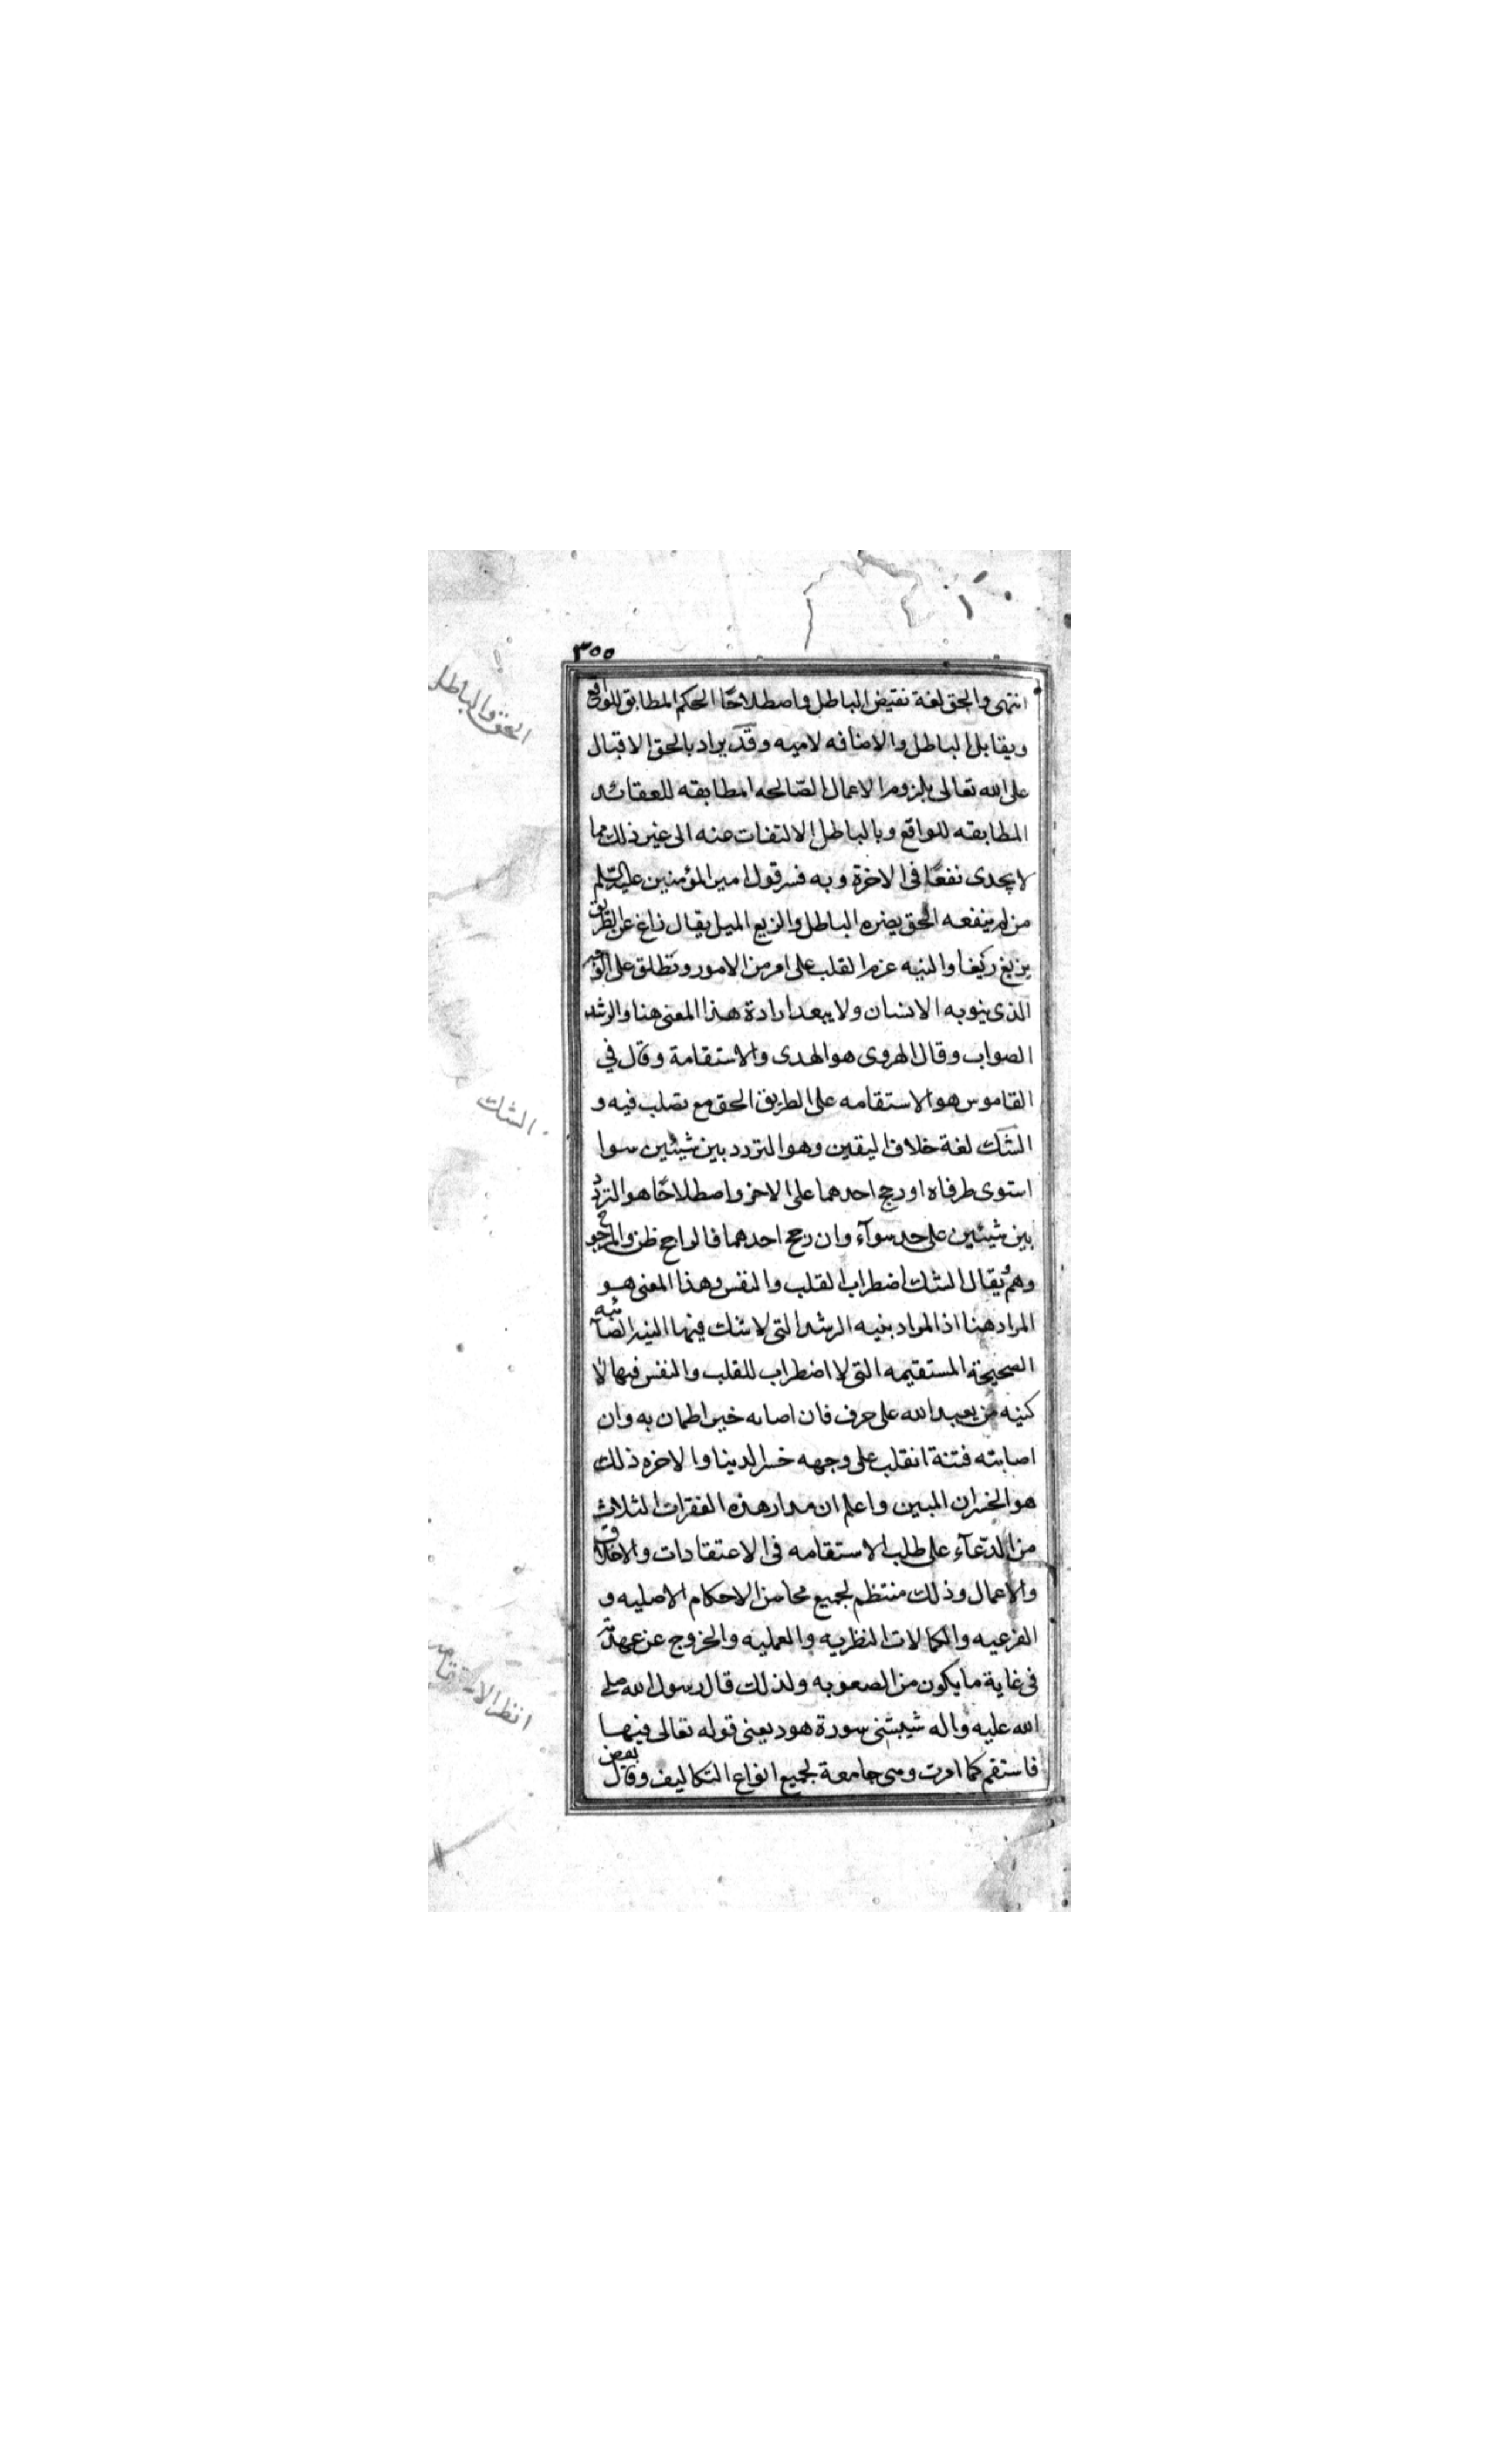 ٣٥٥
انتهى والحق لغة نقيض الباطل واصطلاحًا الحكم المطابق للواقع
ويقابل الباطل والاضافه لاميه وقد يراد بالحق الاقبال
على الله تعالى بلزوم الاعمال الصّالحه المطابقه للعقائد
المطابقه للواقع وبالباطل الالتفات عنه الى غير ذلك مما
لا يجدى نفعًا فى الاخرة وبه فسر قول امير المؤمنين عليه السّلم
من لم ينفعه الحق يضره الباطل والزيغ الميل يقال زاغ عن الطريق
يزيغ زيغا والنيه عزم القلب على امر من الامور وتطلق على
الذى ينويه الانسان ولا يبعد ارادة هذا المعنى هنا والرشد
الصواب وقال الهروى هو الهدى والاستقامة وقال في
القاموس هو الاستقامه على الطريق الحق مع تصلب فيه و
الشك لغة خلاف اليقين وهو التردد بين شيئين سوا
استوى طرفاه او رجح احدهما على الاخر واصطلاحًا هو التردد
بين شيئين على حد سوآء وان رجح احدهما فالراجح ظن والمرجوح
وهم ويقال الشك اضطراب القلب والنفس وهذا المعنى هو
المراد هنا اذ المراد بنيه الرشد التى لا شك فيها النيه الصآئبه
الصحيحة المستقيمه التى لا اضطراب للقلب والنفس فيها لا
كنيه من يعبد الله على حرف فان اصابه خير اطمان به وان
اصابته فتنة انقلب على وجهه خسر الدينا والاخره ذلك
هو الخسران المبين واعلم ان مدار هذه الفقرات الثلاث
من الدّعآء على طلب الاستقامه فى الاعتقادات والاخلاق
والاعمال وذلك منتظم لجميع محاسن الاحكام الاصليه و
الفرعيه والكمالات النظريه والعمليه والخروج عن عهدته
فى غاية ما يكون من الصعوبه ولذلك قال رسول الله صلى
الله عليه واله شيبتنى سورة هود يعنى قوله تعالى فيها
فاستقم كما امرت وهى جامعة لجميع انواع التكاليف وقال بعض
الحق والباطل
الشك
انظر الاستقامه